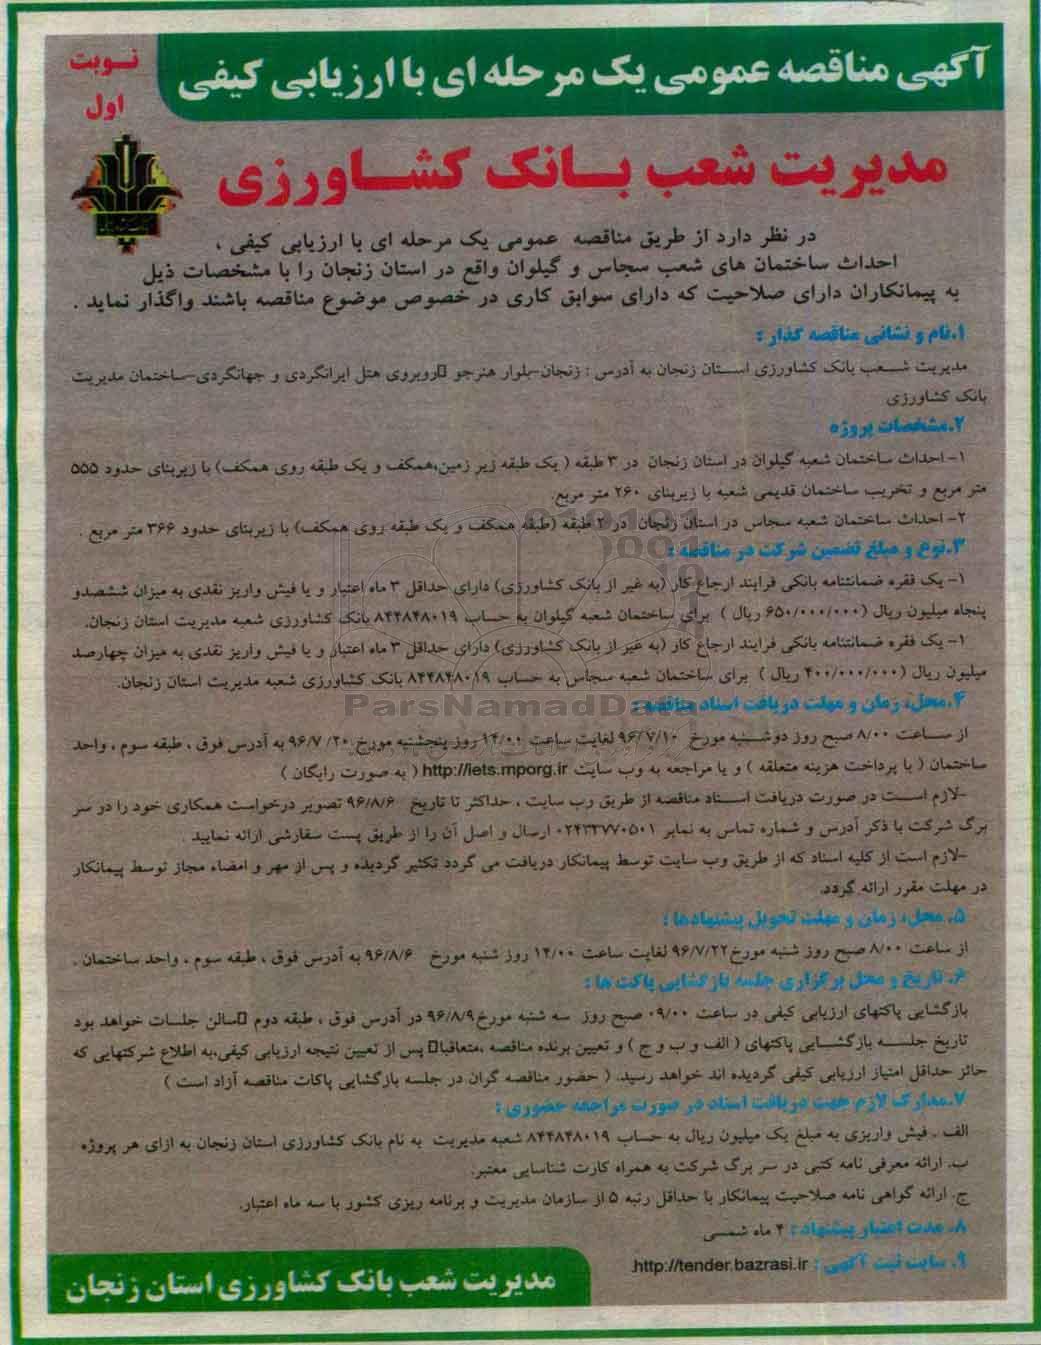 آگهی مناقصه عمومی یک مرحله ای با ارزیابی کیفی
نـوبت
اول
مدیریت شعب بـانک کشـاورزی
در نظر دارد از طریق مناقصه عمومی یک مرحله ای با ارزیابی کیفی ،
احداث ساختمان های شعب سجاس و گیلوان واقع در استان زنجان را با مشخصات ذیل
به پیمانکاران دارای صلاحیت که دارای سوابق کاری در خصوص موضوع مناقصه باشند واگذار نماید .
۱.نام و نشانی مناقصه گذار :
مدیریت شعب بانک کشاورزی استان زنجان به آدرس : زنجان-بلوار هنرجو روبروی هتل ایرانگردی و جهانگردی-ساختمان مدیریت
بانک کشاورزی
۲.مشخصات پروژه
۱- احداث ساختمان شعبه گیلوان در استان زنجان در ۳ طبقه ( یک طبقه زیر زمین،همکف و یک طبقه روی همکف) با زیربنای حدود ۵۵۵
متر مربع و تخریب ساختمان قدیمی شعبه با زیربنای ۲۶۰ متر مربع.
۲- احداث ساختمان شعبه سجاس در استان زنجان در ۲ طبقه (طبقه همکف و یک طبقه روی همکف) با زیربنای حدود ۳۶۶ متر مربع .
۳.نوع و مبلغ تضمین شرکت در مناقصه :
۱- یک فقره ضمانتنامه بانکی فرایند ارجاع کار (به غیر از بانک کشاورزی) دارای حداقل ۳ ماه اعتبار و یا فیش واریز نقدی به میزان ششصدو
پنجاه میلیون ریال (۶۵۰/۰۰۰/۰۰۰ ریال ) برای ساختمان شعبه گیلوان به حساب ۸۴۴۸۴۸۰۱۹ بانک کشاورزی شعبه مدیریت استان زنجان.
۱- یک فقره ضمانتنامه بانکی فرایند ارجاع کار (به غیر از بانک کشاورزی) دارای حداقل ۳ ماه اعتبار و یا فیش واریز نقدی به میزان چهارصد
میلیون ریال (۴۰۰/۰۰۰/۰۰۰ ریال ) برای ساختمان شعبه سجاس به حساب ۸۴۴۸۴۸۰۱۹ بانک کشاورزی شعبه مدیریت استان زنجان.
ParsNamadData
۴.محل، زمان و مهلت دریافت اسناد مناقصه :
از ساعت ۸/۰۰ صبح روز دوشنبه مورخ ۹۶/۷/۱۰ لغایت ساعت ۱۴/۰۰ روز پنجشنبه مورخ ۹۶/۷/۲۰ به آدرس فوق ، طبقه سوم ، واحد
ساختمان ( با پرداخت هزینه متعلقه ) و یا مراجعه به وب سایت http://iets.mporg.ir ( به صورت رایگان )
-لازم است در صورت دریافت اسناد مناقصه از طریق وب سایت ، حداکثر تا تاریخ ۹۶/۸/۶ تصویر درخواست همکاری خود را در سر
برگ شرکت با ذکر آدرس و شماره تماس به نمابر ۰۲۴۳۳۷۷۰۵۰۱ ارسال و اصل آن را از طریق پست سفارشی ارائه نمایید .
-لازم است از کلیه اسناد که از طریق وب سایت توسط پیمانکار دریافت می گردد تکثیر گردیده و پس از مهر و امضاء مجاز توسط پیمانکار
در مهلت مقرر ارائه گردد.
۵. محل، زمان و مهلت تحویل پیشنهادها :
از ساعت ۸/۰۰ صبح روز شنبه مورخ ۹۶/۷/۲۲ لغایت ساعت ۱۴/۰۰ روز شنبه مورخ ۹۶/۸/۶ به آدرس فوق ، طبقه سوم ، واحد ساختمان .
۶. تاریخ و محل برگزاری جلسه بازگشایی پاکت ها :
بازگشایی پاکتهای ارزیابی کیفی در ساعت ۰۹/۰۰ صبح روز سه شنبه مورخ ۹۶/۸/۹ در آدرس فوق ، طبقه دوم سالن جلسات خواهد بود
تاریخ جلسه بازگشایی پاکتهای ( الف و ب و ج ) و تعیین برنده مناقصه ،متعاقبا پس از تعیین نتیجه ارزیابی کیفی،به اطلاع شرکتهایی که
حائز حداقل امتیاز ارزیابی کیفی گردیده اند خواهد رسید. ( حضور مناقصه گران در جلسه بازگشایی پاکات مناقصه آزاد است )
۷.مدارک لازم جهت دریافت اسناد در صورت مراجعه حضوری :
الف . فیش واریزی به مبلغ یک میلیون ریال به حساب ۸۴۴۸۴۸۰۱۹ شعبه مدیریت به نام بانک کشاورزی استان زنجان به ازای هر پروژه
ب. ارائه معرفی نامه کتبی در سر برگ شرکت به همراه کارت شناسایی معتبر.
ج. ارائه گواهی نامه صلاحیت پیمانکار با حداقل رتبه ۵ از سازمان مدیریت و برنامه ریزی کشور با سه ماه اعتبار.
۸. مدت اعتبار پیشنهاد : ۴ ماه شمسی
۹. سایت ثبت آگهی : http://tender.bazrasi.ir
مدیریت شعب بانک کشاورزی استان زنجان